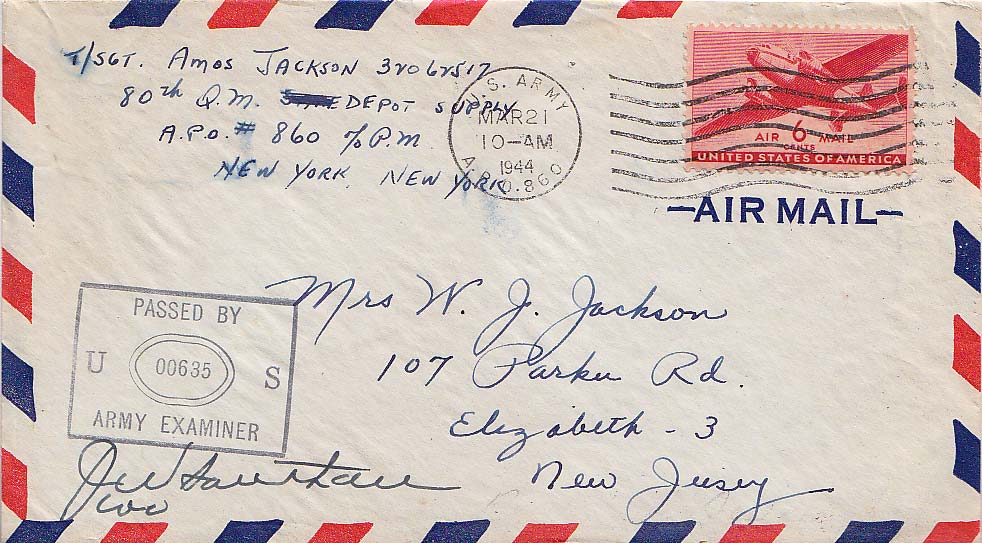 T/SGT. Amos JACKSON 32062517
80th Q.M. DEPOT SUPPLY
A.P.O. # 860 % P.M
NEW YORK, NEW YORK
U.S. ARMY
MAR 21
10-AM
1944
A.P.O. 860
AIR 6 MAIL
CENTS
UNITED STATES OF AMERICA
-AIR MAIL-
Mrs W. J. Jackson
107 Parker Rd.
Elizabeth - 3
New Jersey
PASSED BY
U 00635 S
ARMY EXAMINER